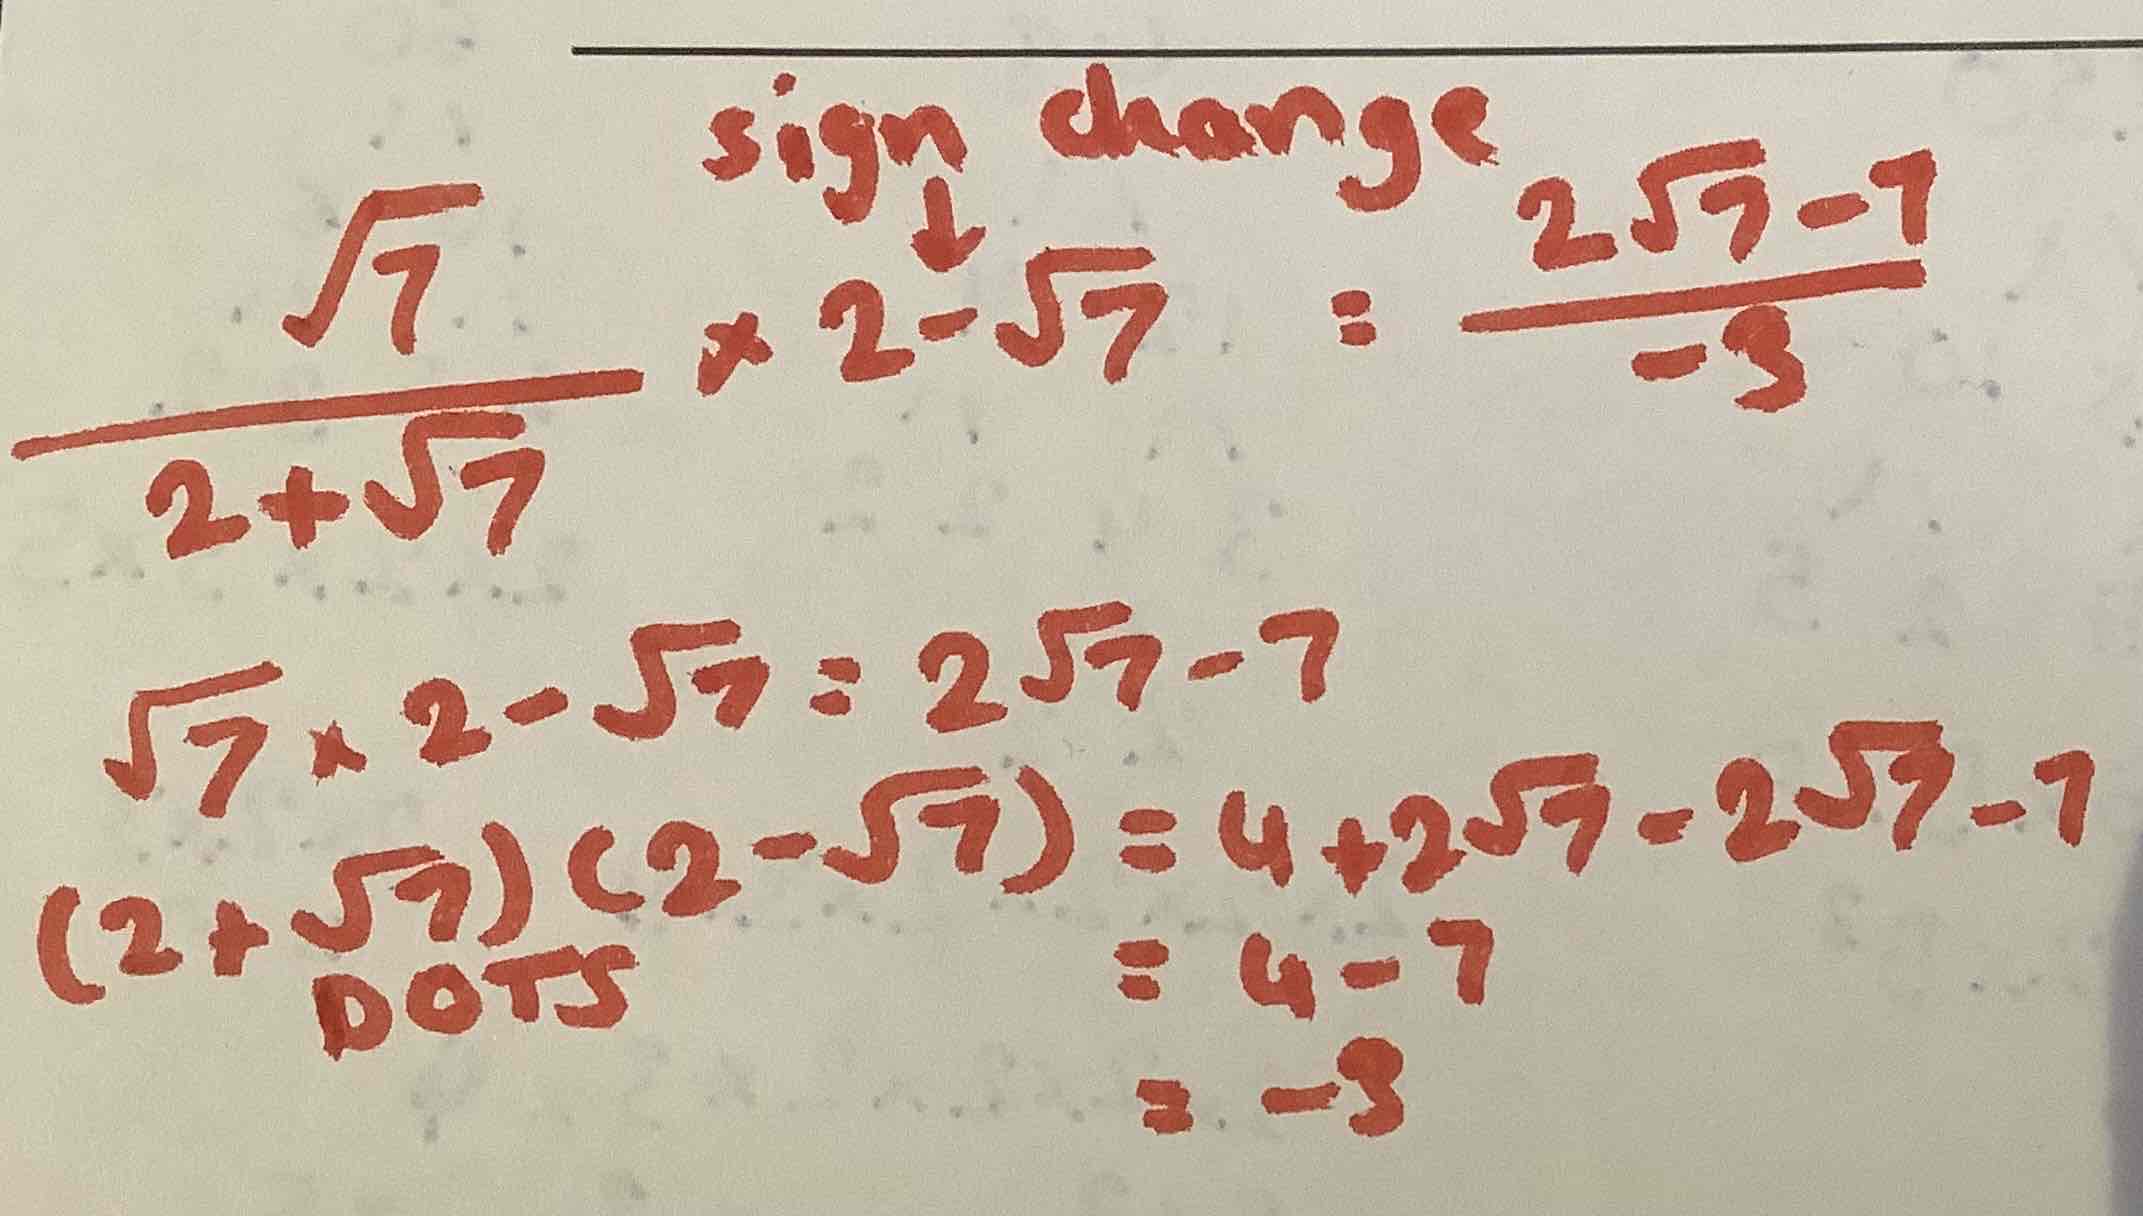 sign change
↓
√7 / 2+√7 × 2-√7 = 2√7-7 / -3
√7 × 2-√7 = 2√7-7
(2+√7)(2-√7) = 4+2√7-2√7-7
DOTS
= 4-7
= -3